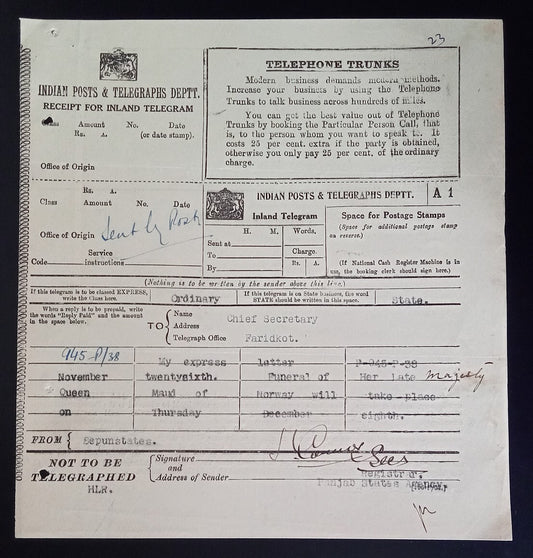 23
INDIAN POSTS & TELEGRAPHS DEPTT.
RECEIPT FOR INLAND TELEGRAM
Class Amount No. Date
Rs. A. (or date stamp).
Office of Origin
TELEPHONE TRUNKS
Modern business demands modern methods.
Increase your business by using the Telephone
Trunks to talk business across hundreds of miles.
You can get the best value out of Telephone
Trunks by booking the Particular Person Call, that
is, to the person whom you want to speak to. It
costs 25 per cent. extra if the party is obtained,
otherwise you only pay 25 per cent. of the ordinary
charge.
Rs. A.
Class Amount No. Date
Office of Origin Sent by Post
Service
Code instructions
INDIAN POSTS & TELEGRAPHS DEPTT.
A 1
Inland Telegram
H. M. Words.
Sent at
To Charge.
By Rs. A.
Space for Postage Stamps
(Space for additional postage stamp
on reverse.)
(If National Cash Register Machine is in
use, the booking clerk should sign here.)
(Nothing is to be written by the sender above this line.)
If this telegram is to be classed EXPRESS,
write the Class here.
Ordinary
If this telegram is on State business, the word
STATE should be written in this space.
State.
When a reply is to be prepaid, write
the words "Reply Paid" and the amount
in the space below.
TO
Name
Address
Telegraph Office
Chief Secretary
Faridkot.
945-P/38 My express letter P-945-P-38
November twentysixth. Funeral of Her Late Majesty
Queen Maud of Norway will take place
on Thursday December eighth.
FROM Sepunstates.
NOT TO BE
TELEGRAPHED
HLR.
Signature
and
Address of Sender
Registrar,
Punjab States Agency.